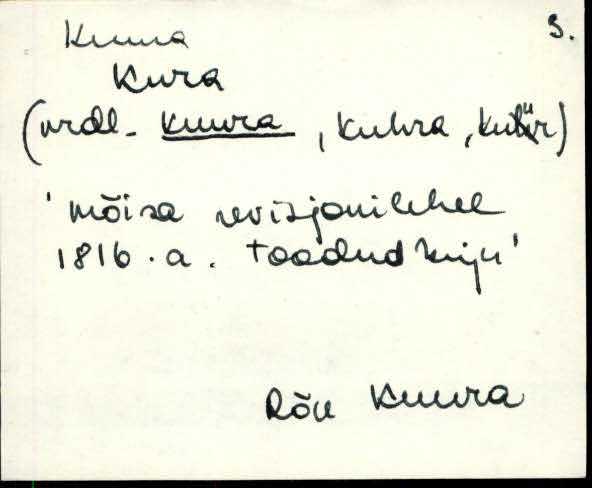 3.
Kuura
Kura
(vrdl. Kuura, Kuhra, Kuhr)
'mõisa revisjonilehel
1816.a. toodud kuju'
Rõu Kuura